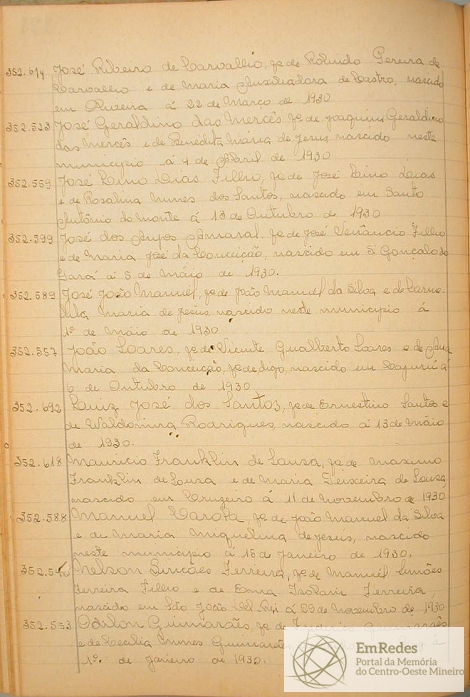 352.614 José Ribeiro de Carvalho, fo de Rolindo Pereira de
Carvalho e de Maria Auxiliadora de Castro, nascido
em Oliveira á 22 de Março de 1930.
352.523 José Geraldino das Mercês, fo de Joaquim Geraldino
das Mercês e de Benedita Maria de Jesus nascido neste
município á 4 de Abril de 1930.
352.569 José Lino Dias Filho, fo de José Lino Dias
e de Rosalina Nunes dos Santos, nascido em Santo
Antônio do Monte á 13 de Outubro de 1930
352.599 José dos Anjos Amaral, fo de José Venâncio Filho
e de Maria José da Conceição, nascido em S. Gonçalo do
Pará á 5 de Maio de 1930.
352.589 José João Manuel, fo de João Manuel da Silva e de
Maria de Jesus nascido neste município á
1º de Maio de 1930
352.557 João Soares, fo de Vicente Gualberto Soares e de Ana
Maria da Conceição, fo digo, nascido em Cajurú á
6 de Outubro de 1930
352.692 Luiz José dos Santos, fo de Ernestino Santos e
de Waldomira Rodrigues, nascido á 13 de Maio
de 1930.
352.618 Mauricio Franklin de Sousa, fo de Maximo
Franklin de Sousa e de Maria Teixeira de Sousa,
nascido em Cruzeiro á 11 de Novembro de 1930
352.588 Manuel Carota, fo de João Manuel da Silva
e de Maria Miquelina de Jesus, nascido
neste município á 16 de Janeiro de 1930.
Nelson Simões Ferreira, fo de Manuel Simões
Ferreira Filho e de Ema Isolani Ferreira,
nascido em São João Del Rei á 29 de Novembro de 1930
352.553 Odilon Guimarães, fo de
e de Cecilia Nunes Guimarães
1º de Janeiro de 1930.
EmRedes
Portal da Memória
do Centro-Oeste Mineiro